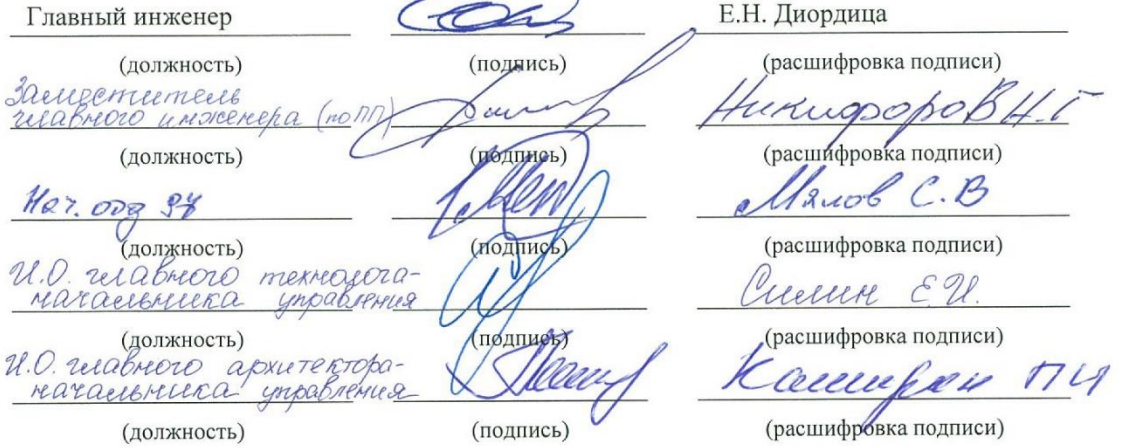 Главный инженер Е.Н. Диордица
(должность) (подпись) (расшифровка подписи)
Заместитель
главного инженера (по ПП) Никифоров Н.Г
(должность) (подпись) (расшифровка подписи)
Нач. отд Мялов С.В
(должность) (подпись) (расшифровка подписи)
И.О. главного технолога-
начальника управления Силин Е.И.
(должность) (подпись) (расшифровка подписи)
И.О. главного архитектора-
начальника управления
(должность) (подпись) (расшифровка подписи)